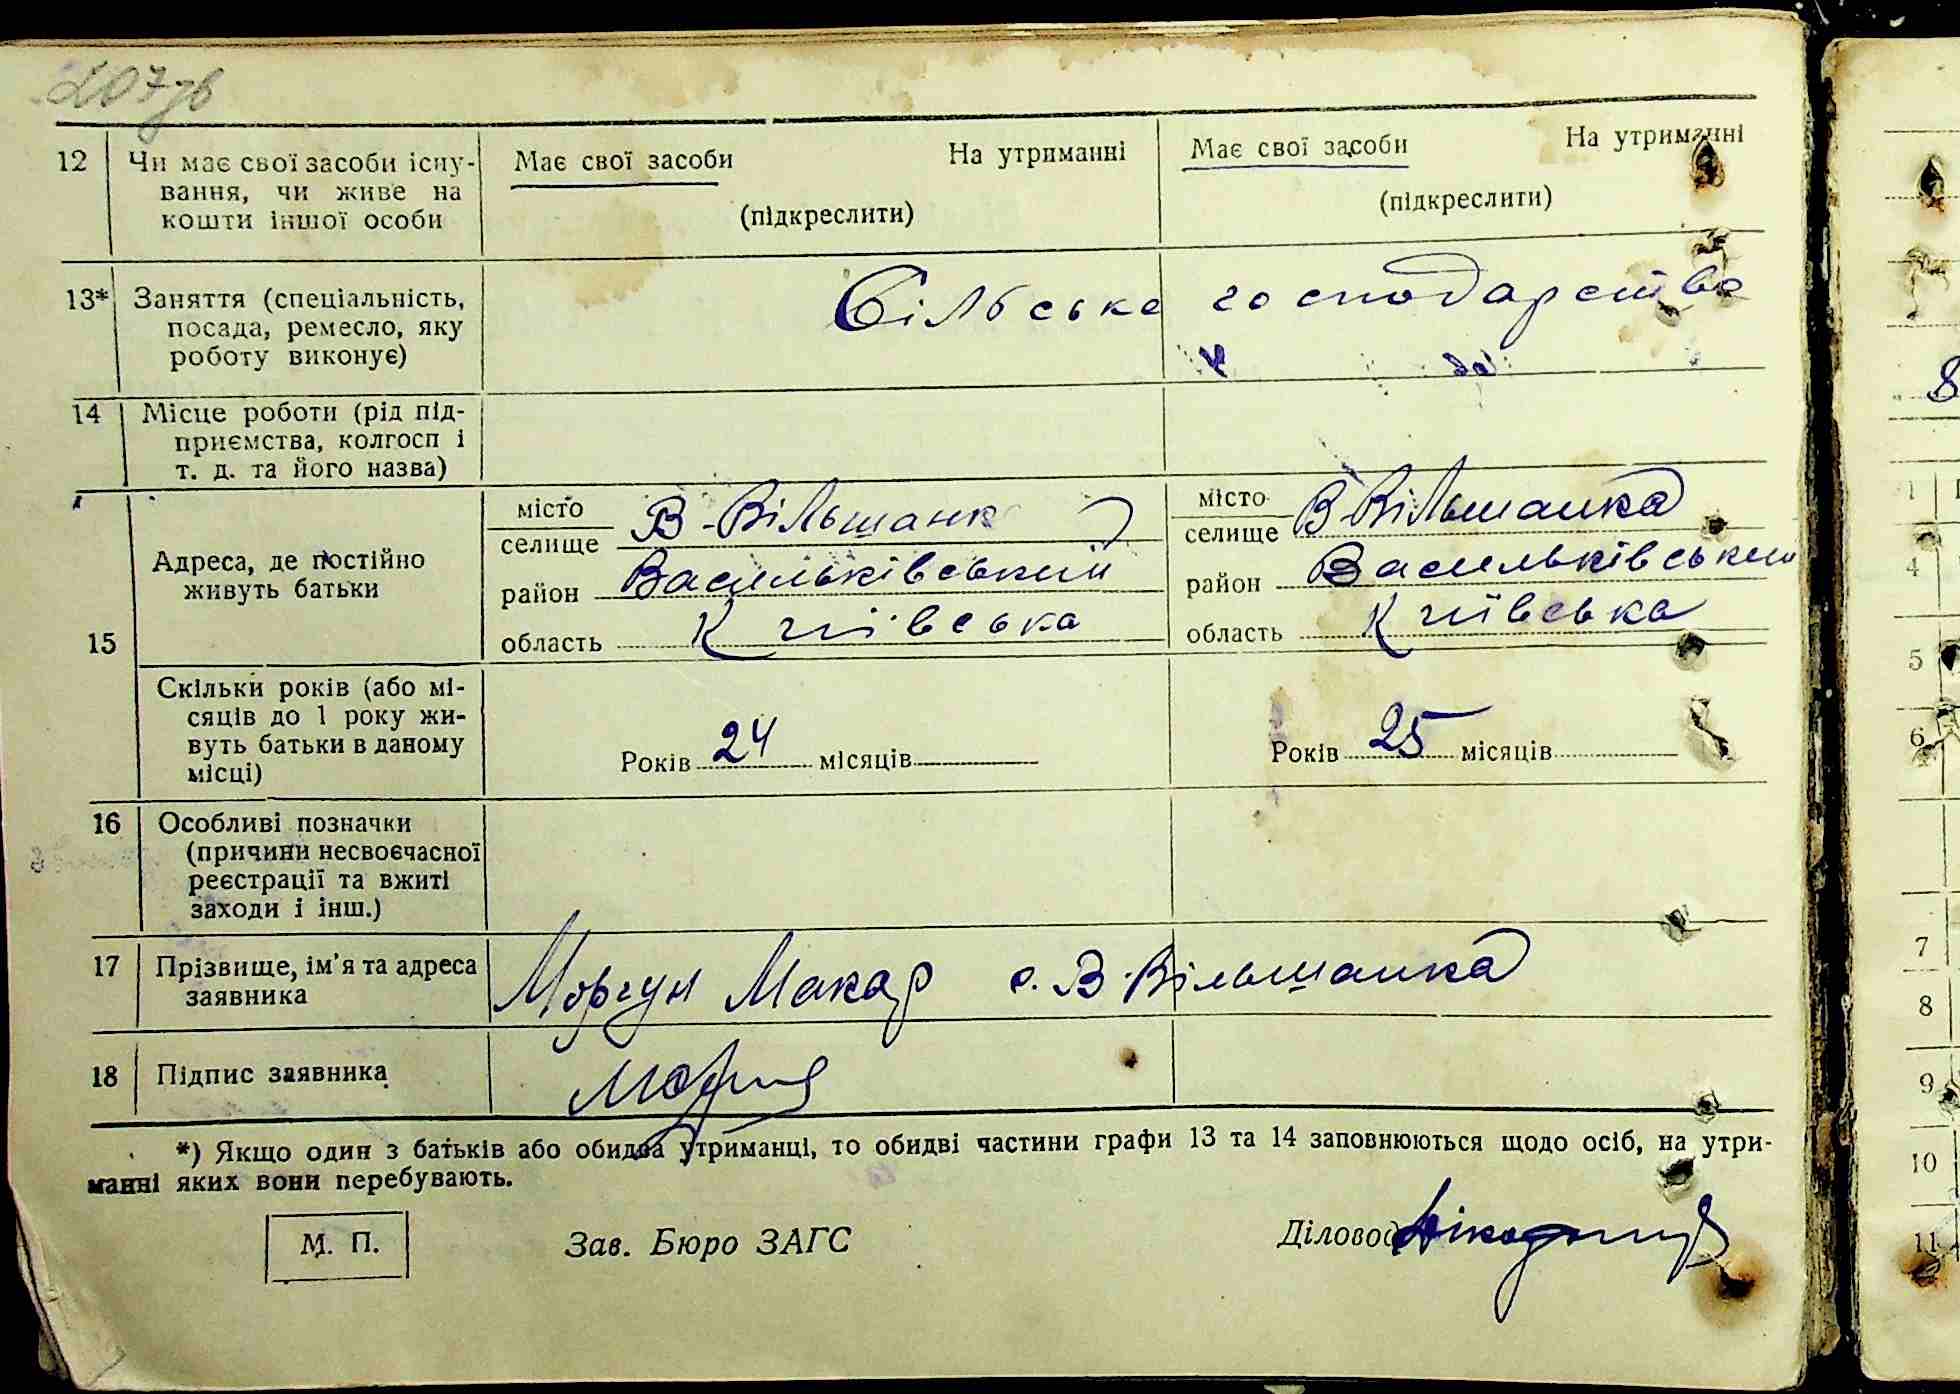 207зв
12 Чи має свої засоби існу-
вання, чи живе на
кошти іншої особи
Має свої засоби На утриманні
(підкреслити)
Має свої засоби На утриманні
(підкреслити)
13* Заняття (спеціальність,
посада, ремесло, яку
роботу виконує)
Сільське господарство
14 Місце роботи (рід під-
приємства, колгосп і
т. д. та його назва)
15
Адреса, де постійно
живуть батьки
місто
селище В-Вільшанка
район Васильківський
область Київська
місто
селище В-Вільшанка
район Васильківський
область Київська
Скільки років (або мі-
сяців до 1 року жи-
вуть батьки в даному
місці)
Років 24 місяців
Років 25 місяців
16 Особливі позначки
(причини несвоєчасної
реєстрації та вжиті
заходи і інш.)
17 Прізвище, ім'я та адреса
заявника
Моргун Макар с. В-Вільшанка
18 Підпис заявника
*) Якщо один з батьків або обидва утриманці, то обидві частини графи 13 та 14 заповнюються щодо осіб, на утри-
манні яких вони перебувають.
М. П. Зав. Бюро ЗАГС Діловод
8
1
4
5
6
7
8
9
10
11